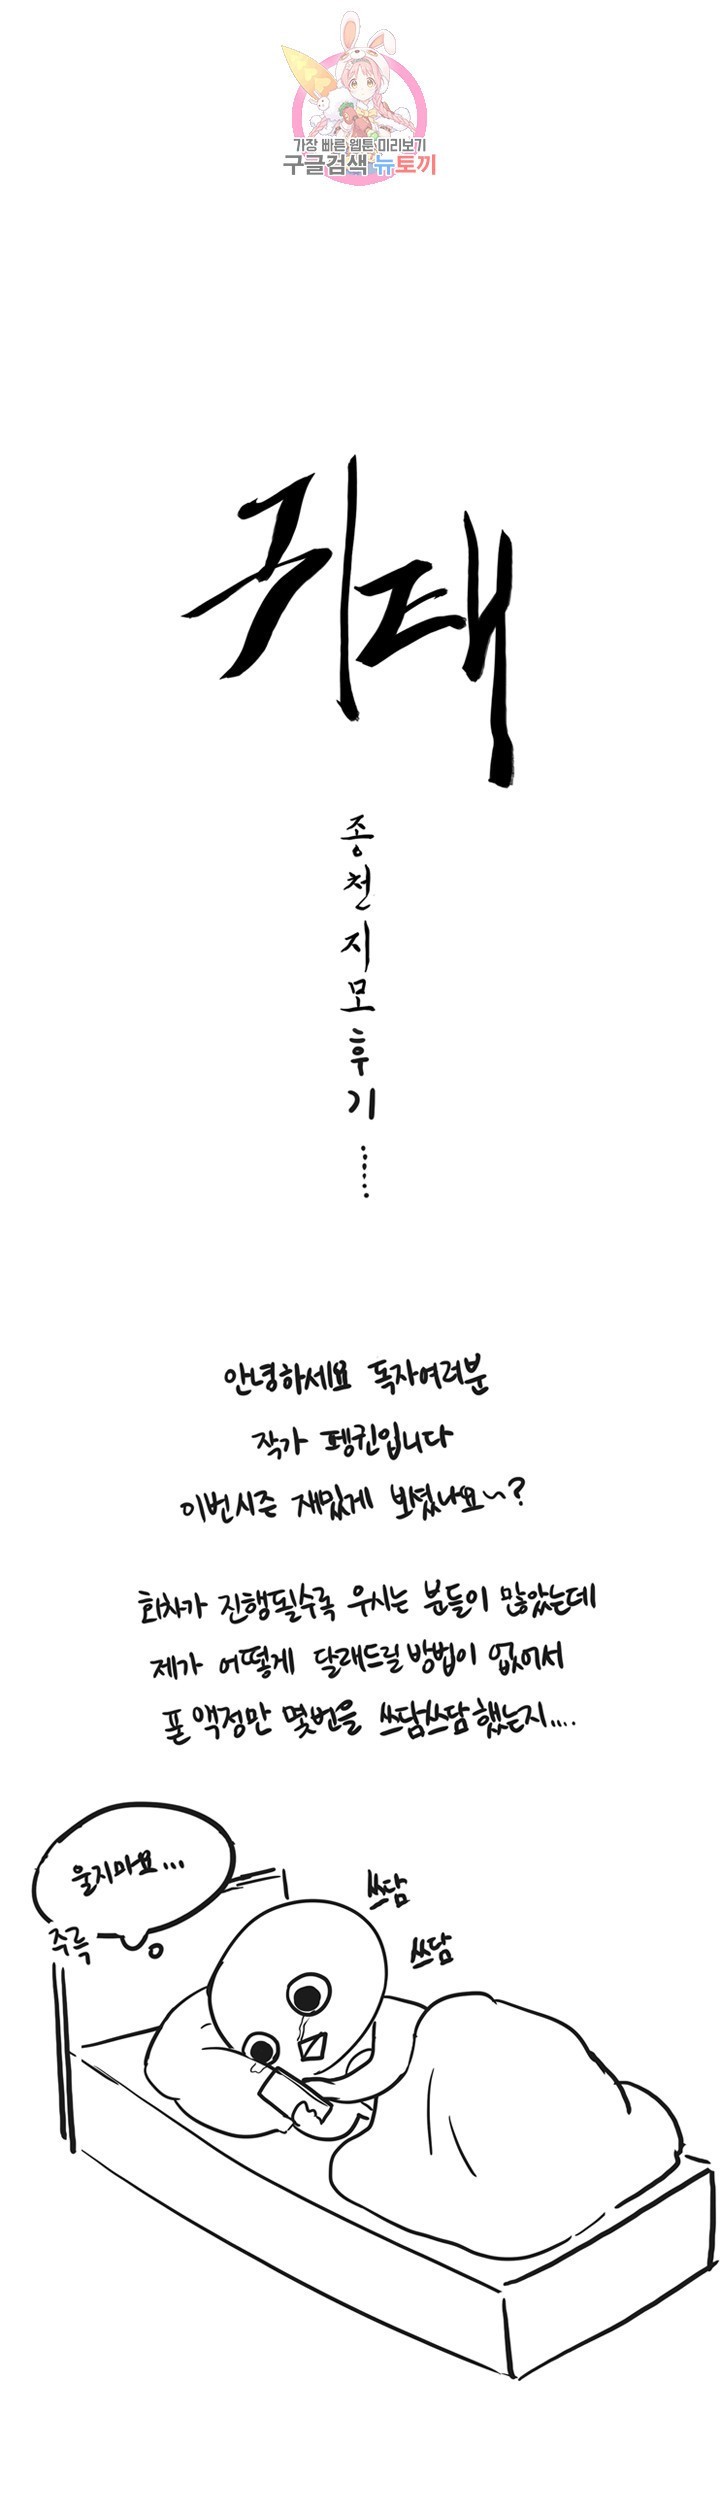 가장 빠른 웹툰 미리보기
구글검색 뉴토끼
귀패
종천지모후기......
안녕하세요 독자여러분
작가 펭귄입니다
이번시즌 재밌게 보셨나요~?
회차가 진행될수록 우시는 분들이 많았는데
제가 어떻게 달래드릴 방법이 없어서
폰 액정만 몇번을 쓰담쓰담 했는지....
울지마요...
쓰담
쓰담
주륵